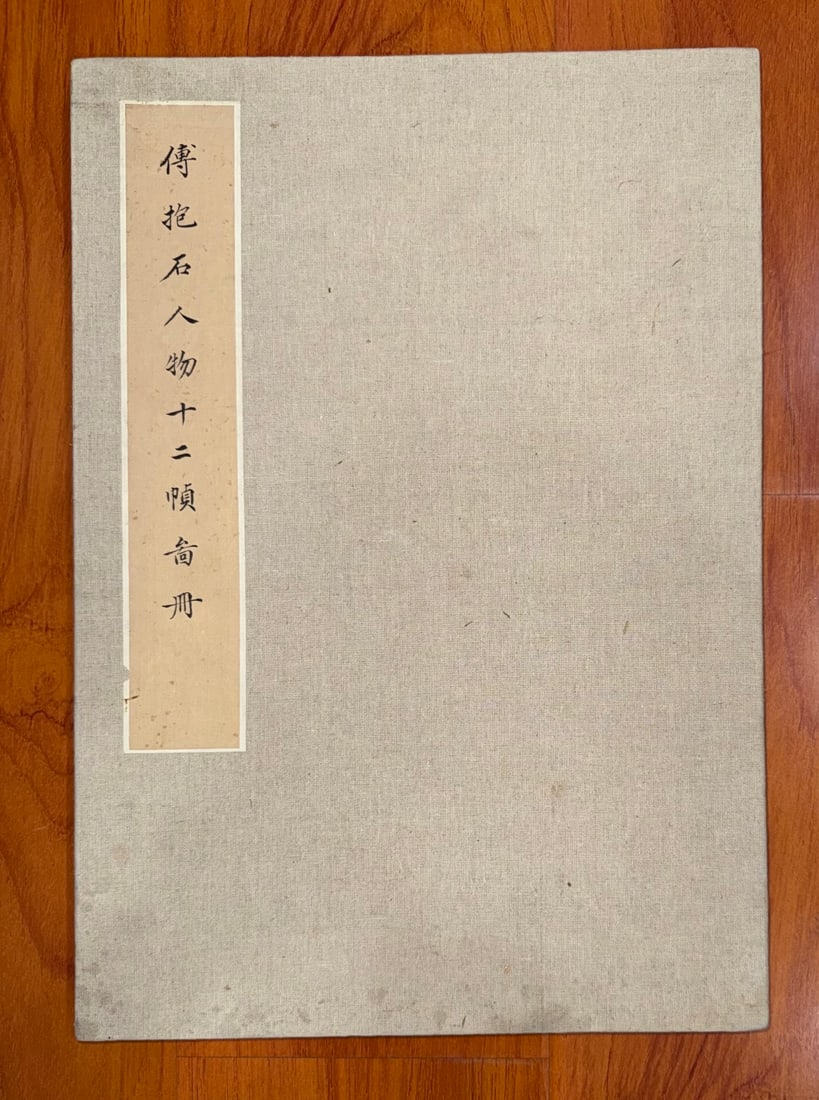 傅抱石人物十二幀啚冊